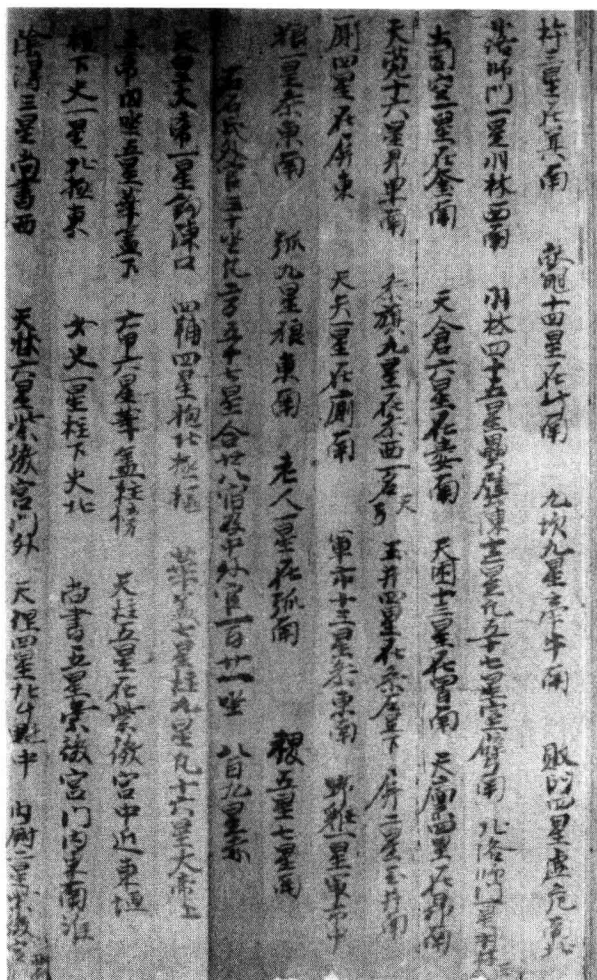 杵三星在箕南 鼈十四星在斗南 九坎九星牽牛南 敗臼四星虛危南
落師門一星羽林西南 羽林四十五星壘壁陣十二星凡五十七星室壁南 北落師門一星羽林
土司空一星在奎南 天倉六星在婁南 天囷十三星在胃南 天廩四星在昴南
天苑十六星昴畢南 參旗九星在參西一名天弓 玉井四星在參左足下 屏二星玉井南
廁四星在屏東 天矢一星在廁南 軍市十三星參東南 野雞一星軍市中
狼一星參東南 弧九星狼東南 老人一星在弧南 稷五星七星南
右石氏外官三十坐凡二百五十七星合廿八宿及中外官一百廿一坐 八百九星赤
天皇大帝一星鉤陳口 四輔四星抱北極樞 華蓋七星柱九星凡十六星大帝上
五帝內坐五星華蓋下 六甲六星華蓋柱傍 天柱五星在紫微宮中近東垣
柱下史一星北極東 女史一星柱下史北 尚書五星紫微宮門內東南維
陰德三星尚書西 天牀六星紫微宮門外 天理四星北斗魁中 內廚二星紫微宮